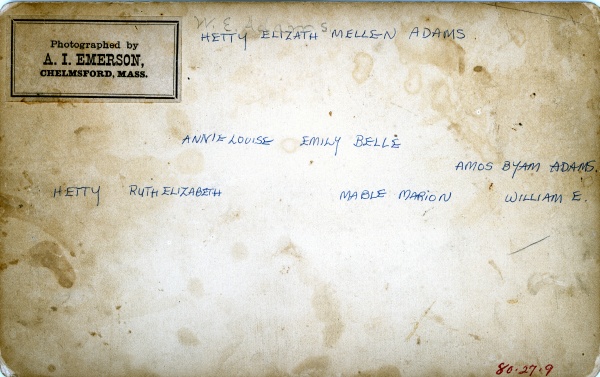 W. E. Adams
Photographed by
A. I. EMERSON,
CHELMSFORD, MASS.
HETTY ELIZATH MELLEN ADAMS
ANNIE LOUISE EMILY BELLE
AMOS BYAM ADAMS.
HETTY RUTH ELIZABETH MABLE MARION WILLIAM E.
80-27-9